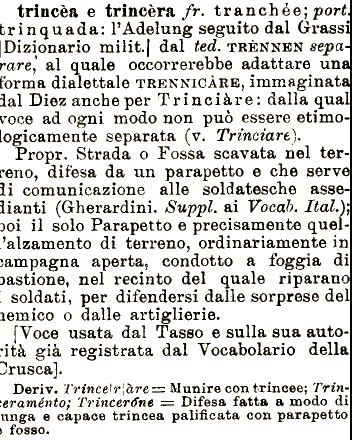 trincèa e trincèra fr. tranchée; port.
trinquada: l'Adelung seguito dal Grassi
[Dizionario milit.] dal ted. TRÈNNEN sepa-
rare, al quale occorrerebbe adattare una
forma dialettale TRENNICÀRE, immaginata
dal Diez anche per Trinciàre: dalla qual
voce ad ogni modo non può essere etimo-
logicamente separata (v. Trinciare).
Propr. Strada o Fossa scavata nel ter-
reno, difesa da un parapetto e che serve
di comunicazione alle soldatesche asse-
dianti (Gherardini. Suppl. ai Vocab. Ital.);
poi il solo Parapetto e precisamente quel-
l'alzamento di terreno, ordinariamente in
campagna aperta, condotto a foggia di
bastione, nel recinto del quale riparano
i soldati, per difendersi dalle sorprese del
nemico o dalle artiglierie.
[Voce usata dal Tasso e sulla sua auto-
rità già registrata dal Vocabolario della
Crusca].
Deriv. Trince[r]àre = Munire con trincee; Trin-
ceraménto; Trinceróne = Difesa fatta a modo di
lunga e capace trincea palificata con parapetto
e fosso.